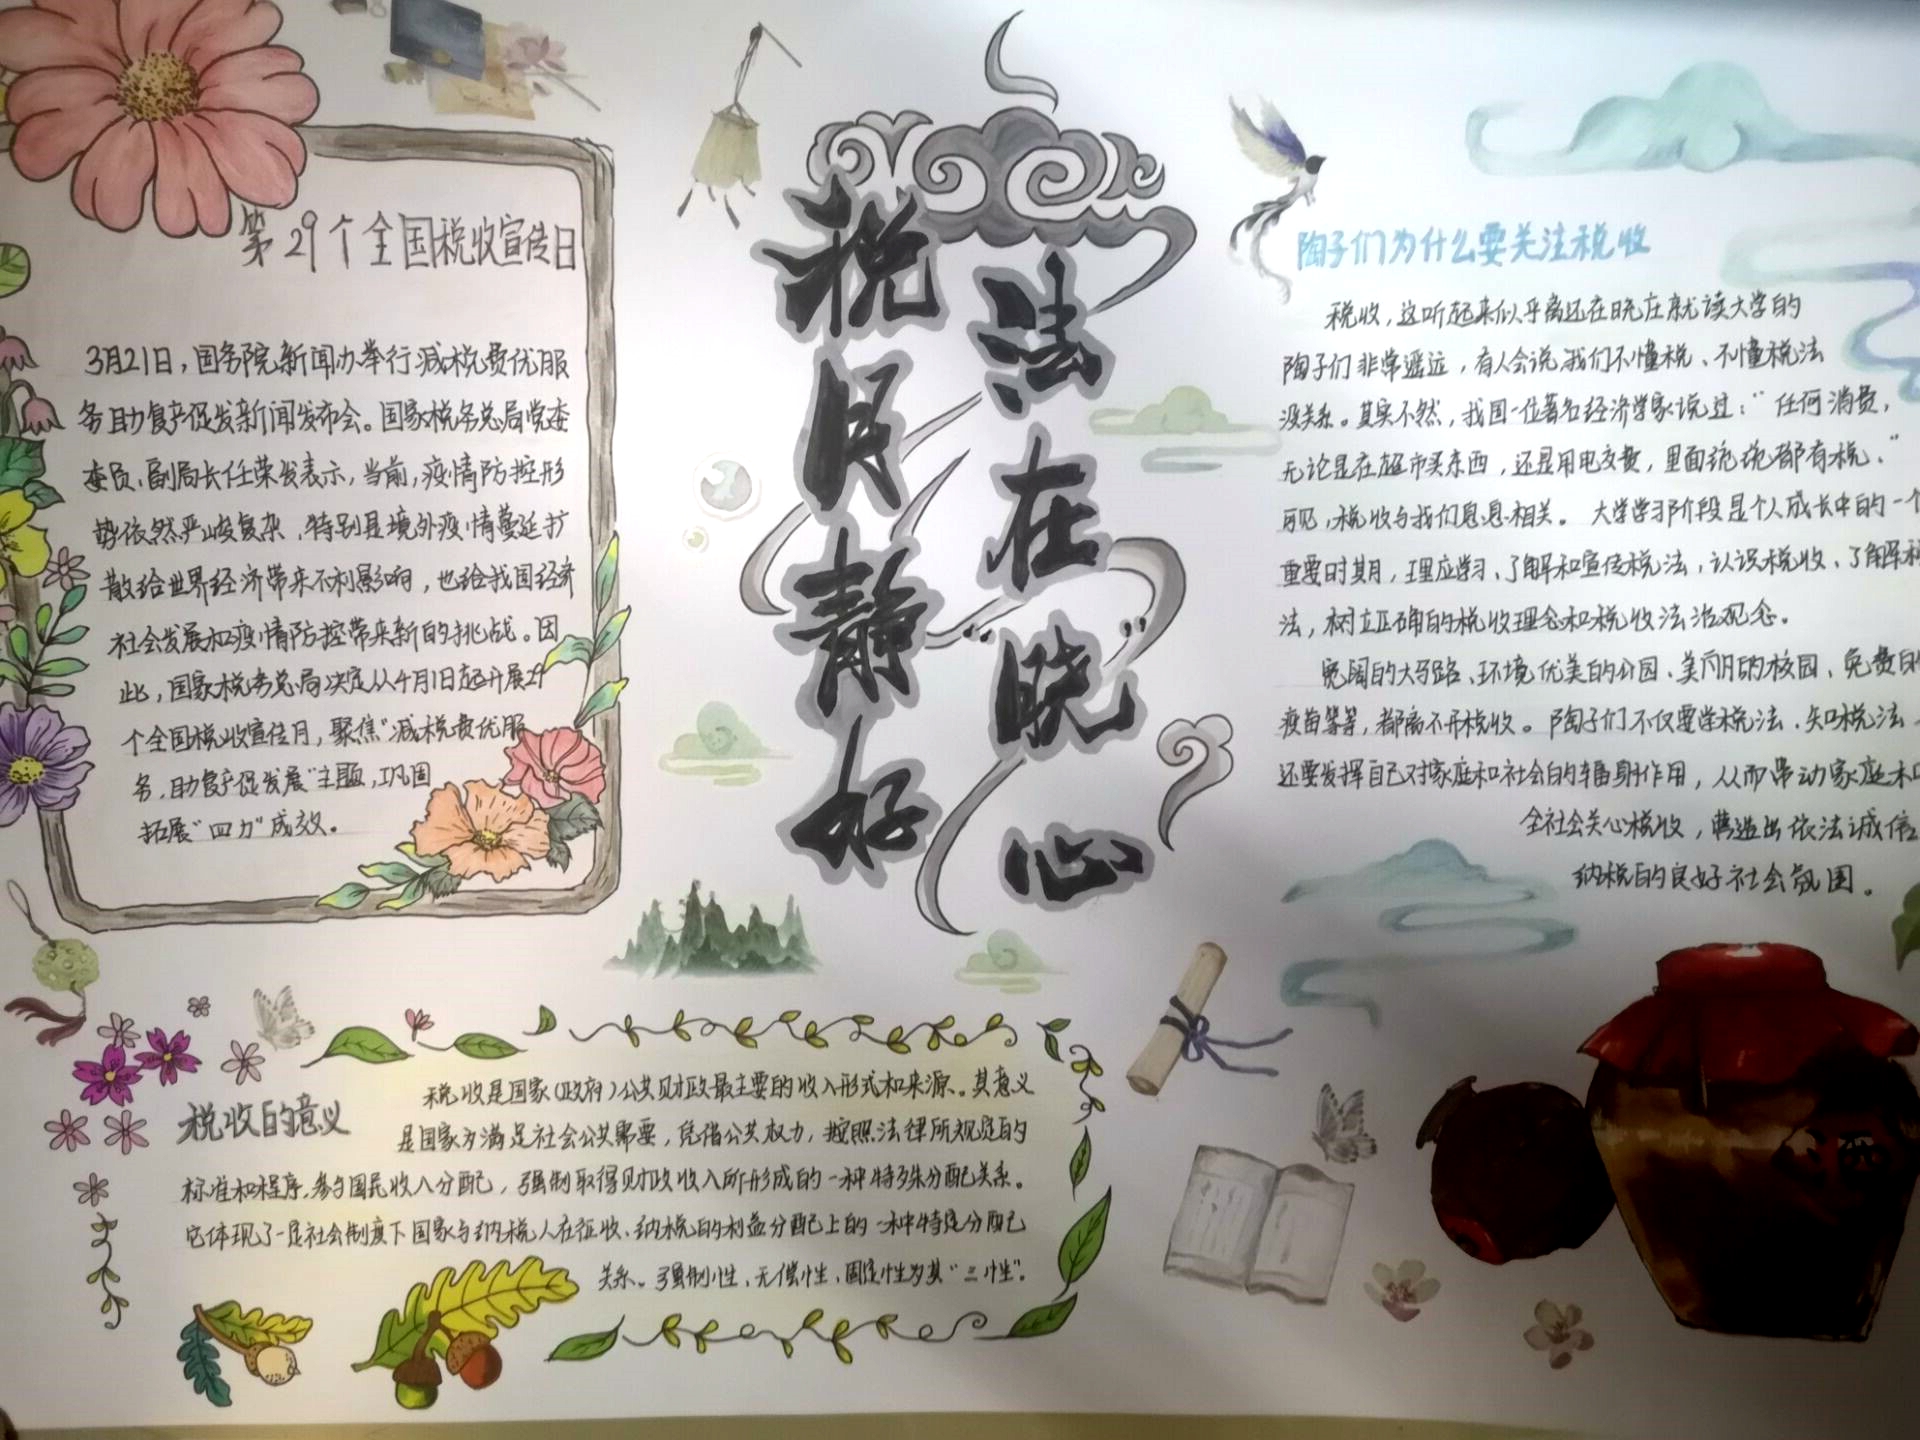 第29个全国税收宣传日
3月21日，国务院新闻办举行减税费优服
务助复产促发新闻发布会。国家税务总局党委
委员、副局长任荣发表示，当前，疫情防控形
势依然严峻复杂，特别是境外疫情蔓延扩
散给世界经济带来不利影响，也给我国经济
社会发展和疫情防控带来新的挑战。因
此，国家税务总局决定从4月1日起开展29
个全国税收宣传月，聚焦"减税费优服
务，助复产促发展"主题，巩固
拓展"四力"成效。
税月静好
法在"晓"心
陶子们为什么要关注税收
税收，这听起来似乎离还在晓庄就读大学的
陶子们非常遥远，有人会说我们不懂税、不懂税法
没关系。其实不然，我国一位著名经济学家说过："任何消费，
无论是在超市买东西，还是用电交费，里面统统都有税。"
可见，税收与我们息息相关。大学学习阶段是个人成长中的一个
重要时期，理应学习、了解和宣传税法，认识税收、了解税
法，树立正确的税收理念和税收法治观念。
宽阔的大马路、环境优美的公园、美丽的校园、免费的
疫苗等等，都离不开税收。陶子们不仅要学税法、知税法，
还要发挥自己对家庭和社会的辐射作用，从而带动家庭和
全社会关心税收，营造出依法诚信
纳税的良好社会氛围。
税收的意义
税收是国家（政府）公共财政最主要的收入形式和来源。其意义
是国家为满足社会公共需要，凭借公共权力，按照法律所规定的
标准和程序，参与国民收入分配，强制取得财政收入所形成的一种特殊分配关系。
它体现了一定社会制度下国家与纳税人在征收、纳税的利益分配上的一种特定分配
关系。强制性、无偿性、固定性为其"三性"。
酒